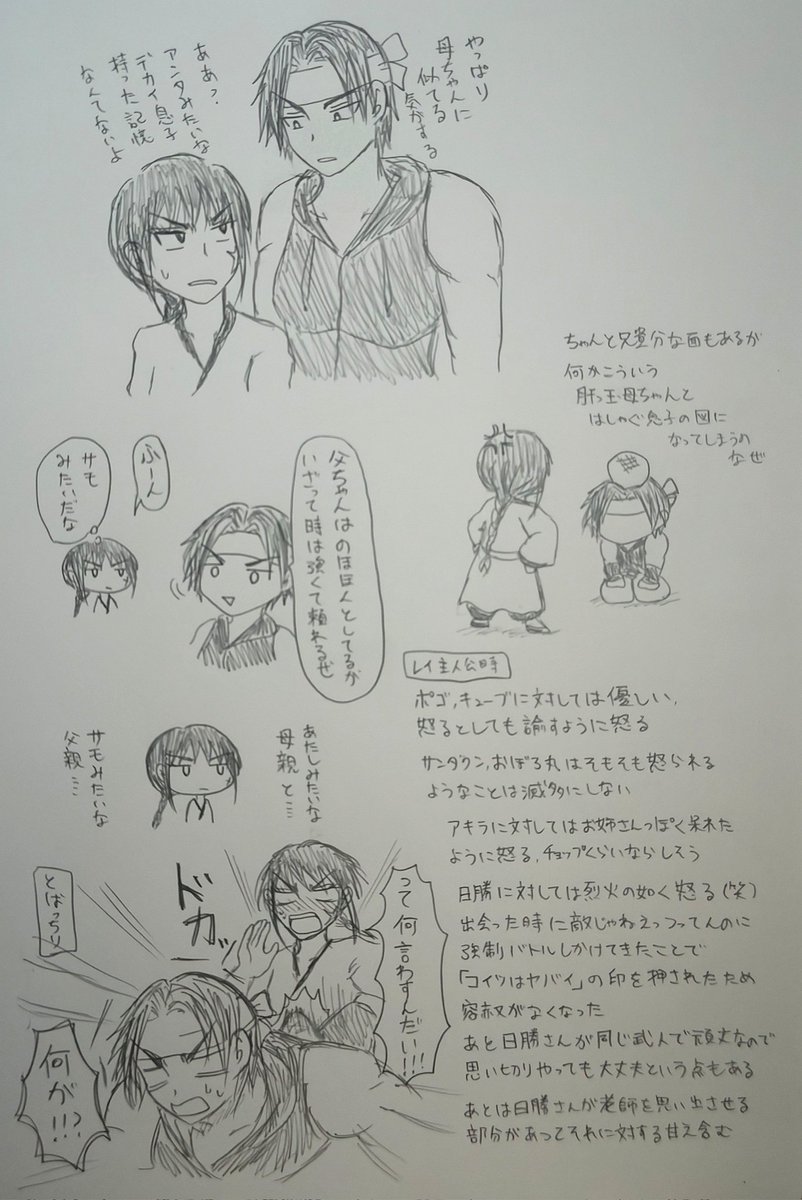 やっぱり
母ちゃんに
似てる
気がする
ああっ?
アンタみたいな
デカイ息子
持った記憶
なんてないよ
ちゃんと兄貴分な面もあるが
何かこういう
肝っ玉母ちゃんと
はしゃぐ息子の図に
なってしまうの
なぜ
父ちゃんはのほほんとしてるが
いざって時は強くて頼れるぜ
ふーん
サモ
みたいだな
あたしみたいな
母親と…
サモみたいな
父親…
って何言わすんだい!!!
ドカッ
とばっちり
何が!!?
レイ主人公時
ポゴ,キューブに対しては優しい,
怒るとしても諭すように怒る
サンダウン,おぼろ丸はそもそも怒られる
ようなことは滅多にしない
アキラに対してはお姉さんっぽく呆れた
ように怒る,チョップくらいならしそう
日勝に対しては烈火の如く怒る(笑)
出会った時に敵じゃねえっつってんのに
強制バトルしかけてきたことで
「コイツはヤバイ」の印を押されたため
容赦がなくなった
あと日勝さんが同じ武人で頑丈なので
思い切りやっても大丈夫という点もある
あとは日勝さんが老師を思い出させる
部分があってそれに対する甘え含む